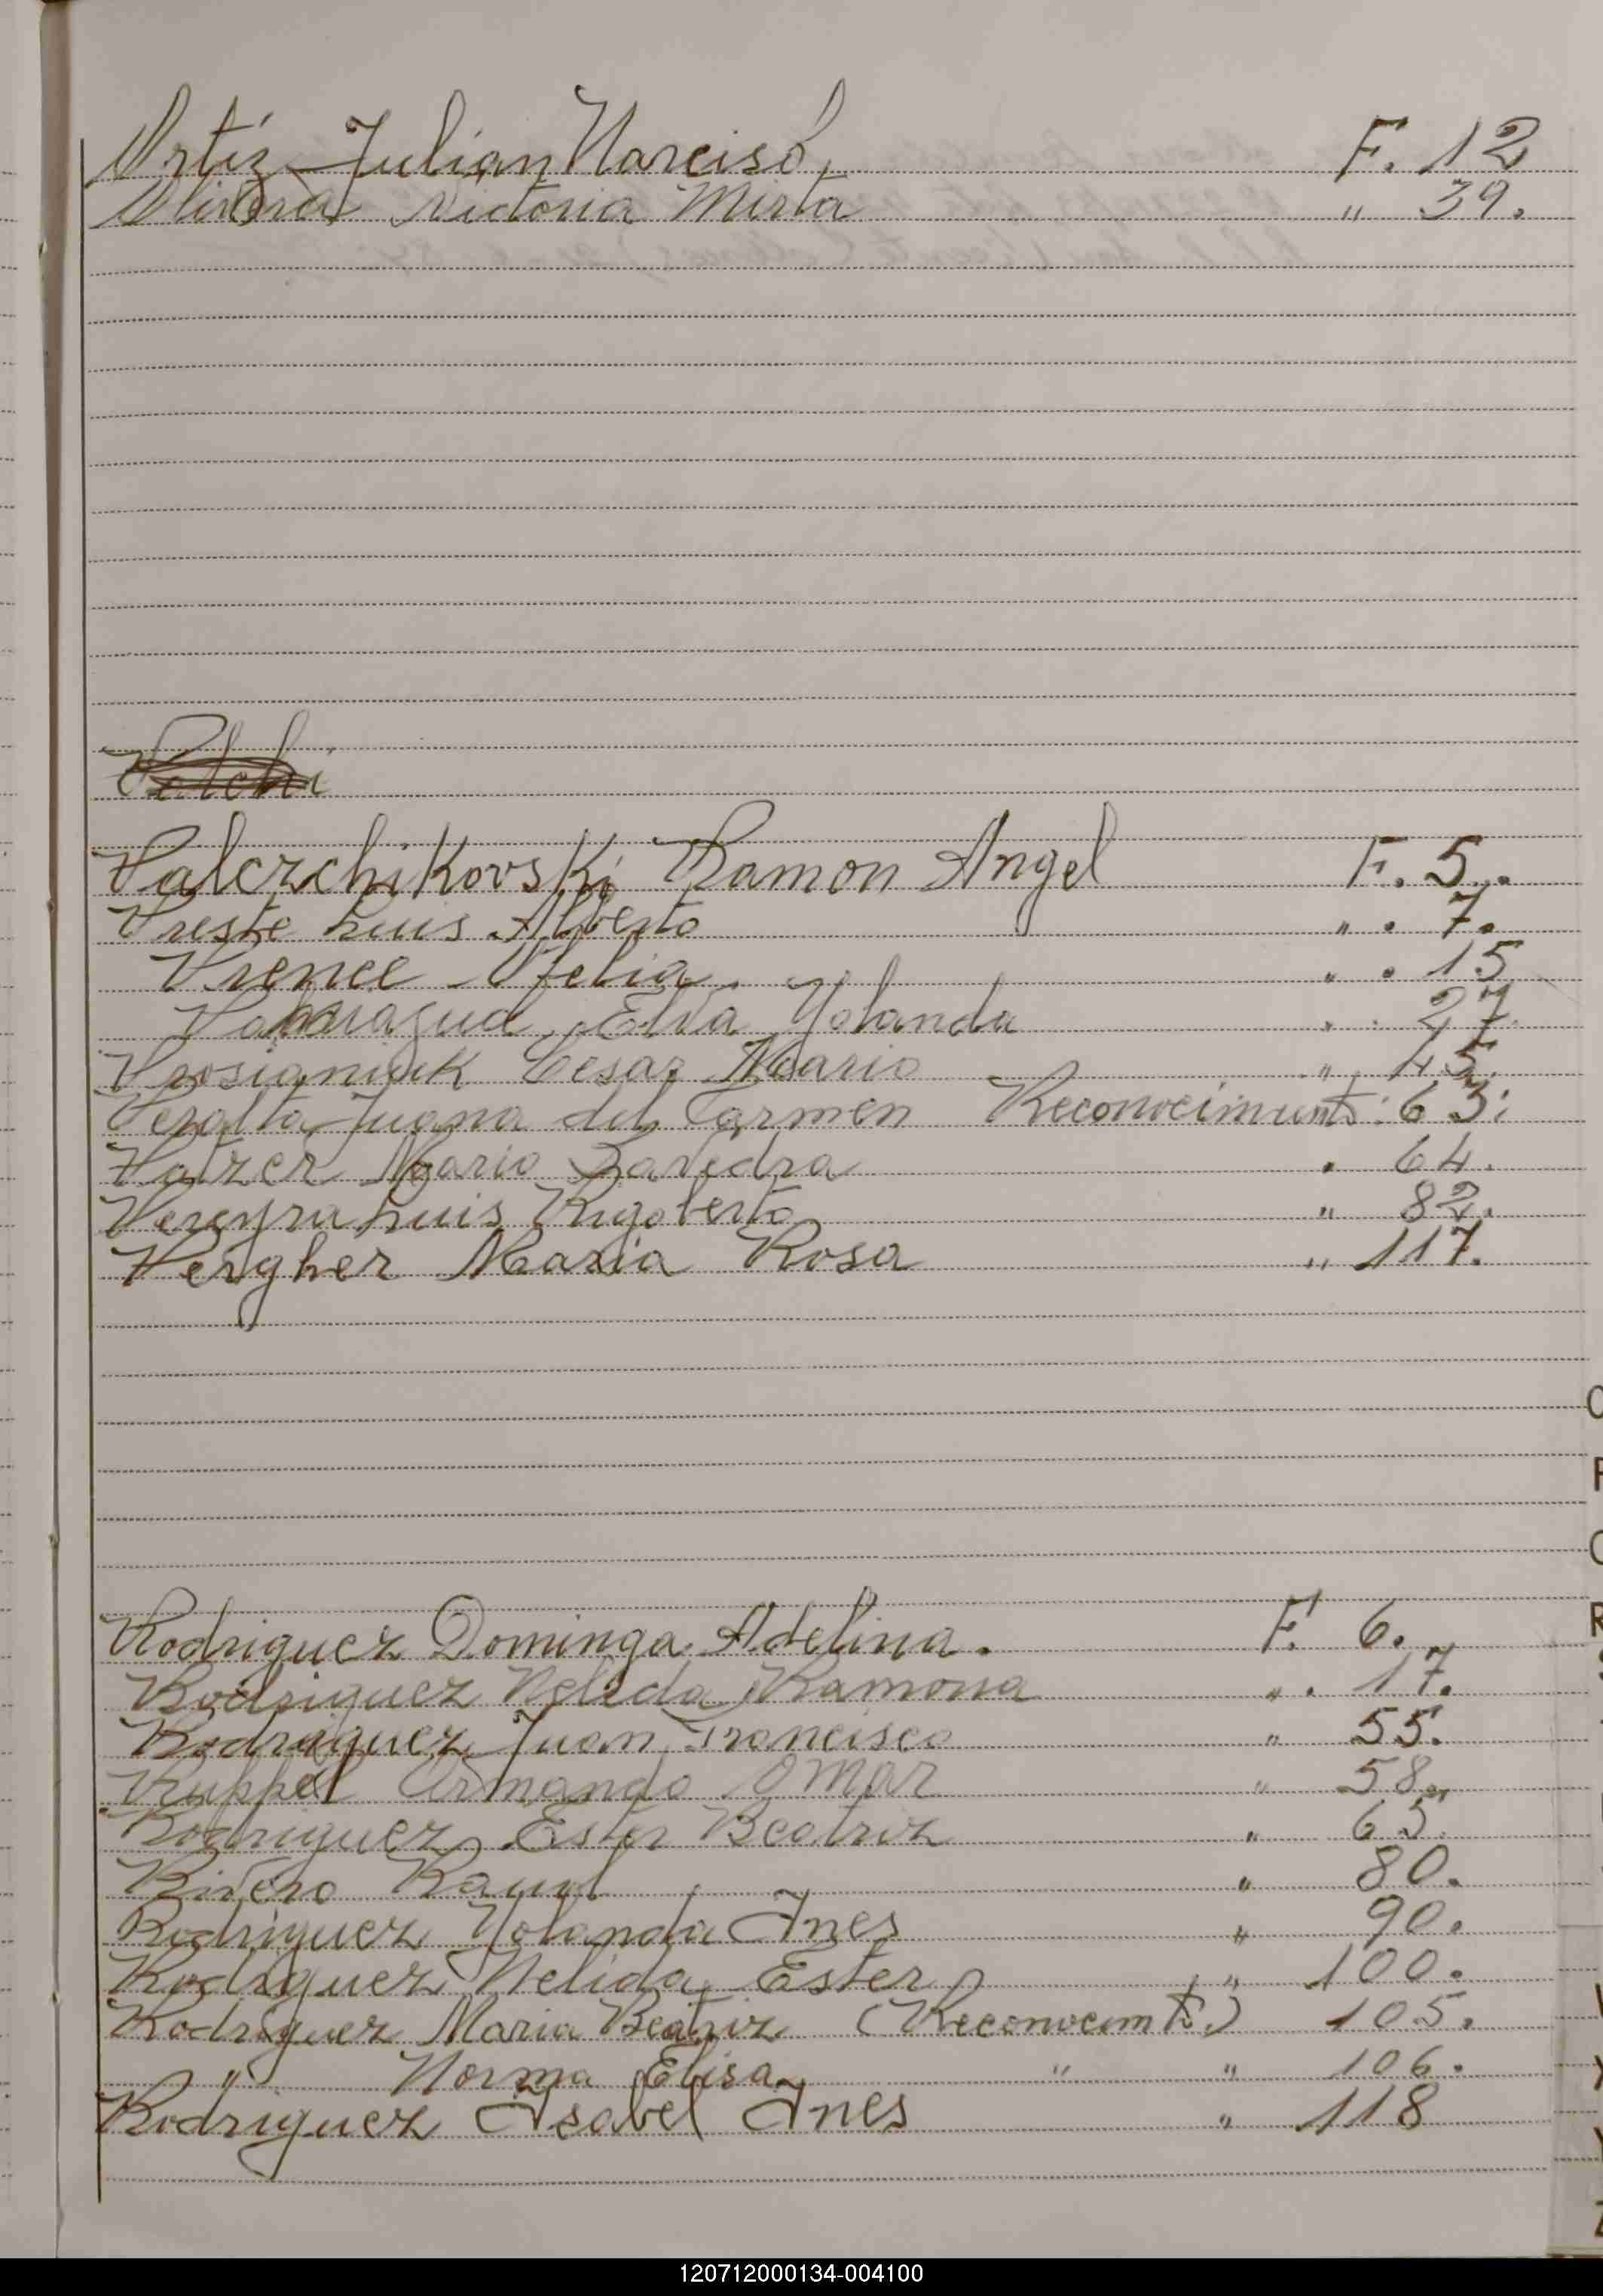 Ortiz Julian Narciso, F. 12
Olivera Victoria Mirta " 39.
Palchi
Palczchikovski Ramon Angel F. 5.
Preste Luis Alberto " . 7.
Prence Ofelia. " . 15
Elva Yolanda " . 27.
Prosigniuk Cesar Mario " 45.
Peralta Juana del Carmen Reconocimiento: 63:
Patzer Mario Savedra " 64.
Pereyra Luis Rigoberto " 82.
Pergher Maria Rosa " 117.
Rodriguez Dominga Adelina. F. 6.
Rodriguez Nelida Ramona " . 17.
Rodriguez Juan Francisco " 55.
Ruppel Armando Omar " 58.
Rodriguez Ester Beatriz " 65.
Rivero Raul " 80.
Rodriguez Yolanda Ines " 90.
Rodriguez Nelida Ester " 100.
Rodriguez Maria Beatriz (Reconocimto.) 105.
" Norma Elisa " " 106.
Rodriguez Isabel Ines " 118
O
P
Q
R
120712000134-004100